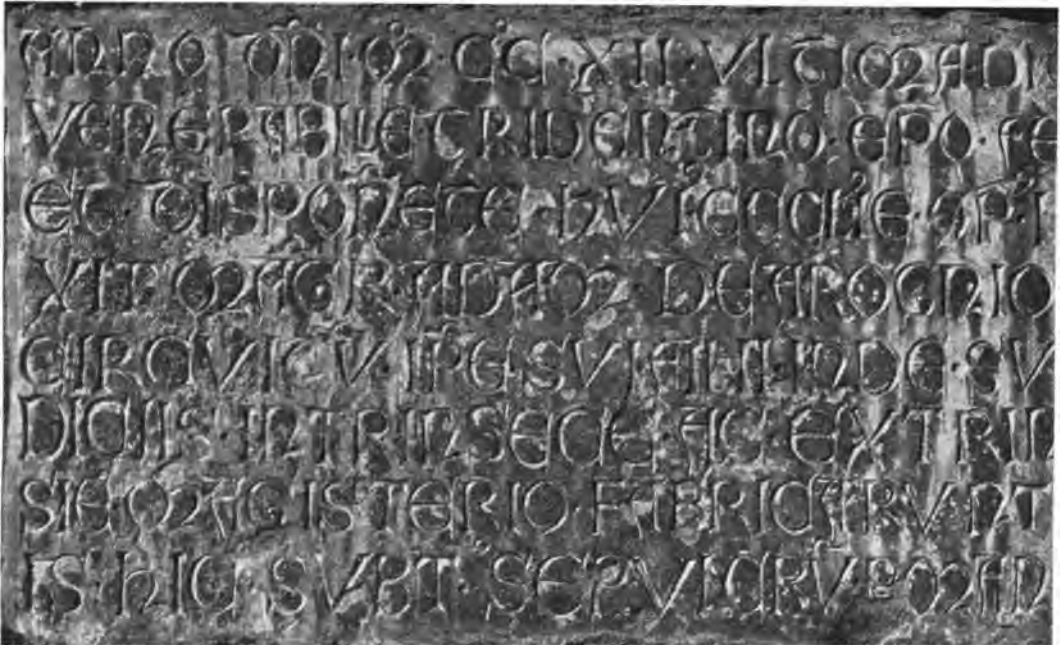 ANNO DNI M CC XII VLTIMA DI
VENERABILE TRIDENTINO EPO FE
ET DISPONETE HVI ECCLIE OP I
XIT MAGR ADAM DE AROGNIO
CIRCVITV IPE SVI FILII INDE SV
DICIIS INTRINSECE AC EXTRIN
MAGISTERIO FABRICARVNT
IS HIC SVBT SEPVLCRVM MAN